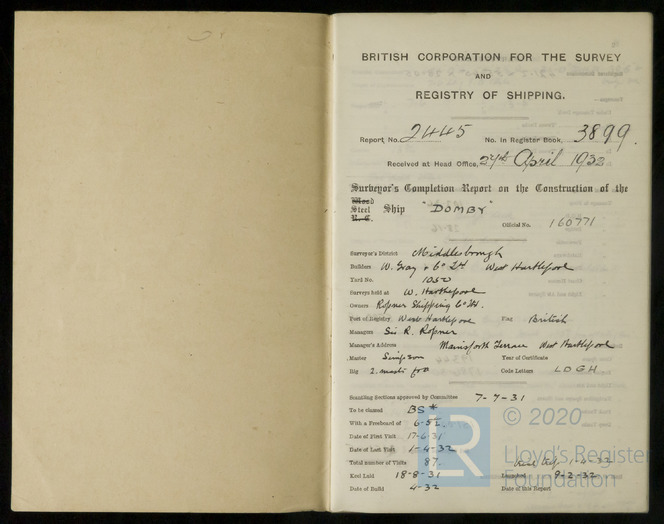 BRITISH CORPORATION FOR THE SURVEY
AND
REGISTRY OF SHIPPING.
Report No. 2445 No. in Register Book, 3899.
Received at Head Office, 27th April 1932
Surveyor's Completion Report on the Construction of the
Wood
Steel Ship "DOMBY"
R.C.
Official No. 160771
Surveyor's District Middlesbrough
Builders W. Gray & Co Ltd West Hartlepool
Yard No. 1050
Surveys held at W. Hartlepool
Owners Ropner Shipping Co Ltd.
Port of Registry West Hartlepool Flag British
Managers Sir R. Ropner
Manager's Address Mainsforth Terrace West Hartlepool
Master Simpson Year of Certificate
Rig 2. masts f&a Code Letters LDGH
Scantling Sections approved by Committee 7-7-31
To be classed BS*
With a Freeboard of
Date of First Visit 17-6-31
Date of Last Visit 1-4-32
Total number of Visits 87.
1-4-32
Keel Laid 18-8-31 Launched 9-2-32
Date of Build 4-32 Date of this Report
LR © 2020
Lloyd's Register
Foundation